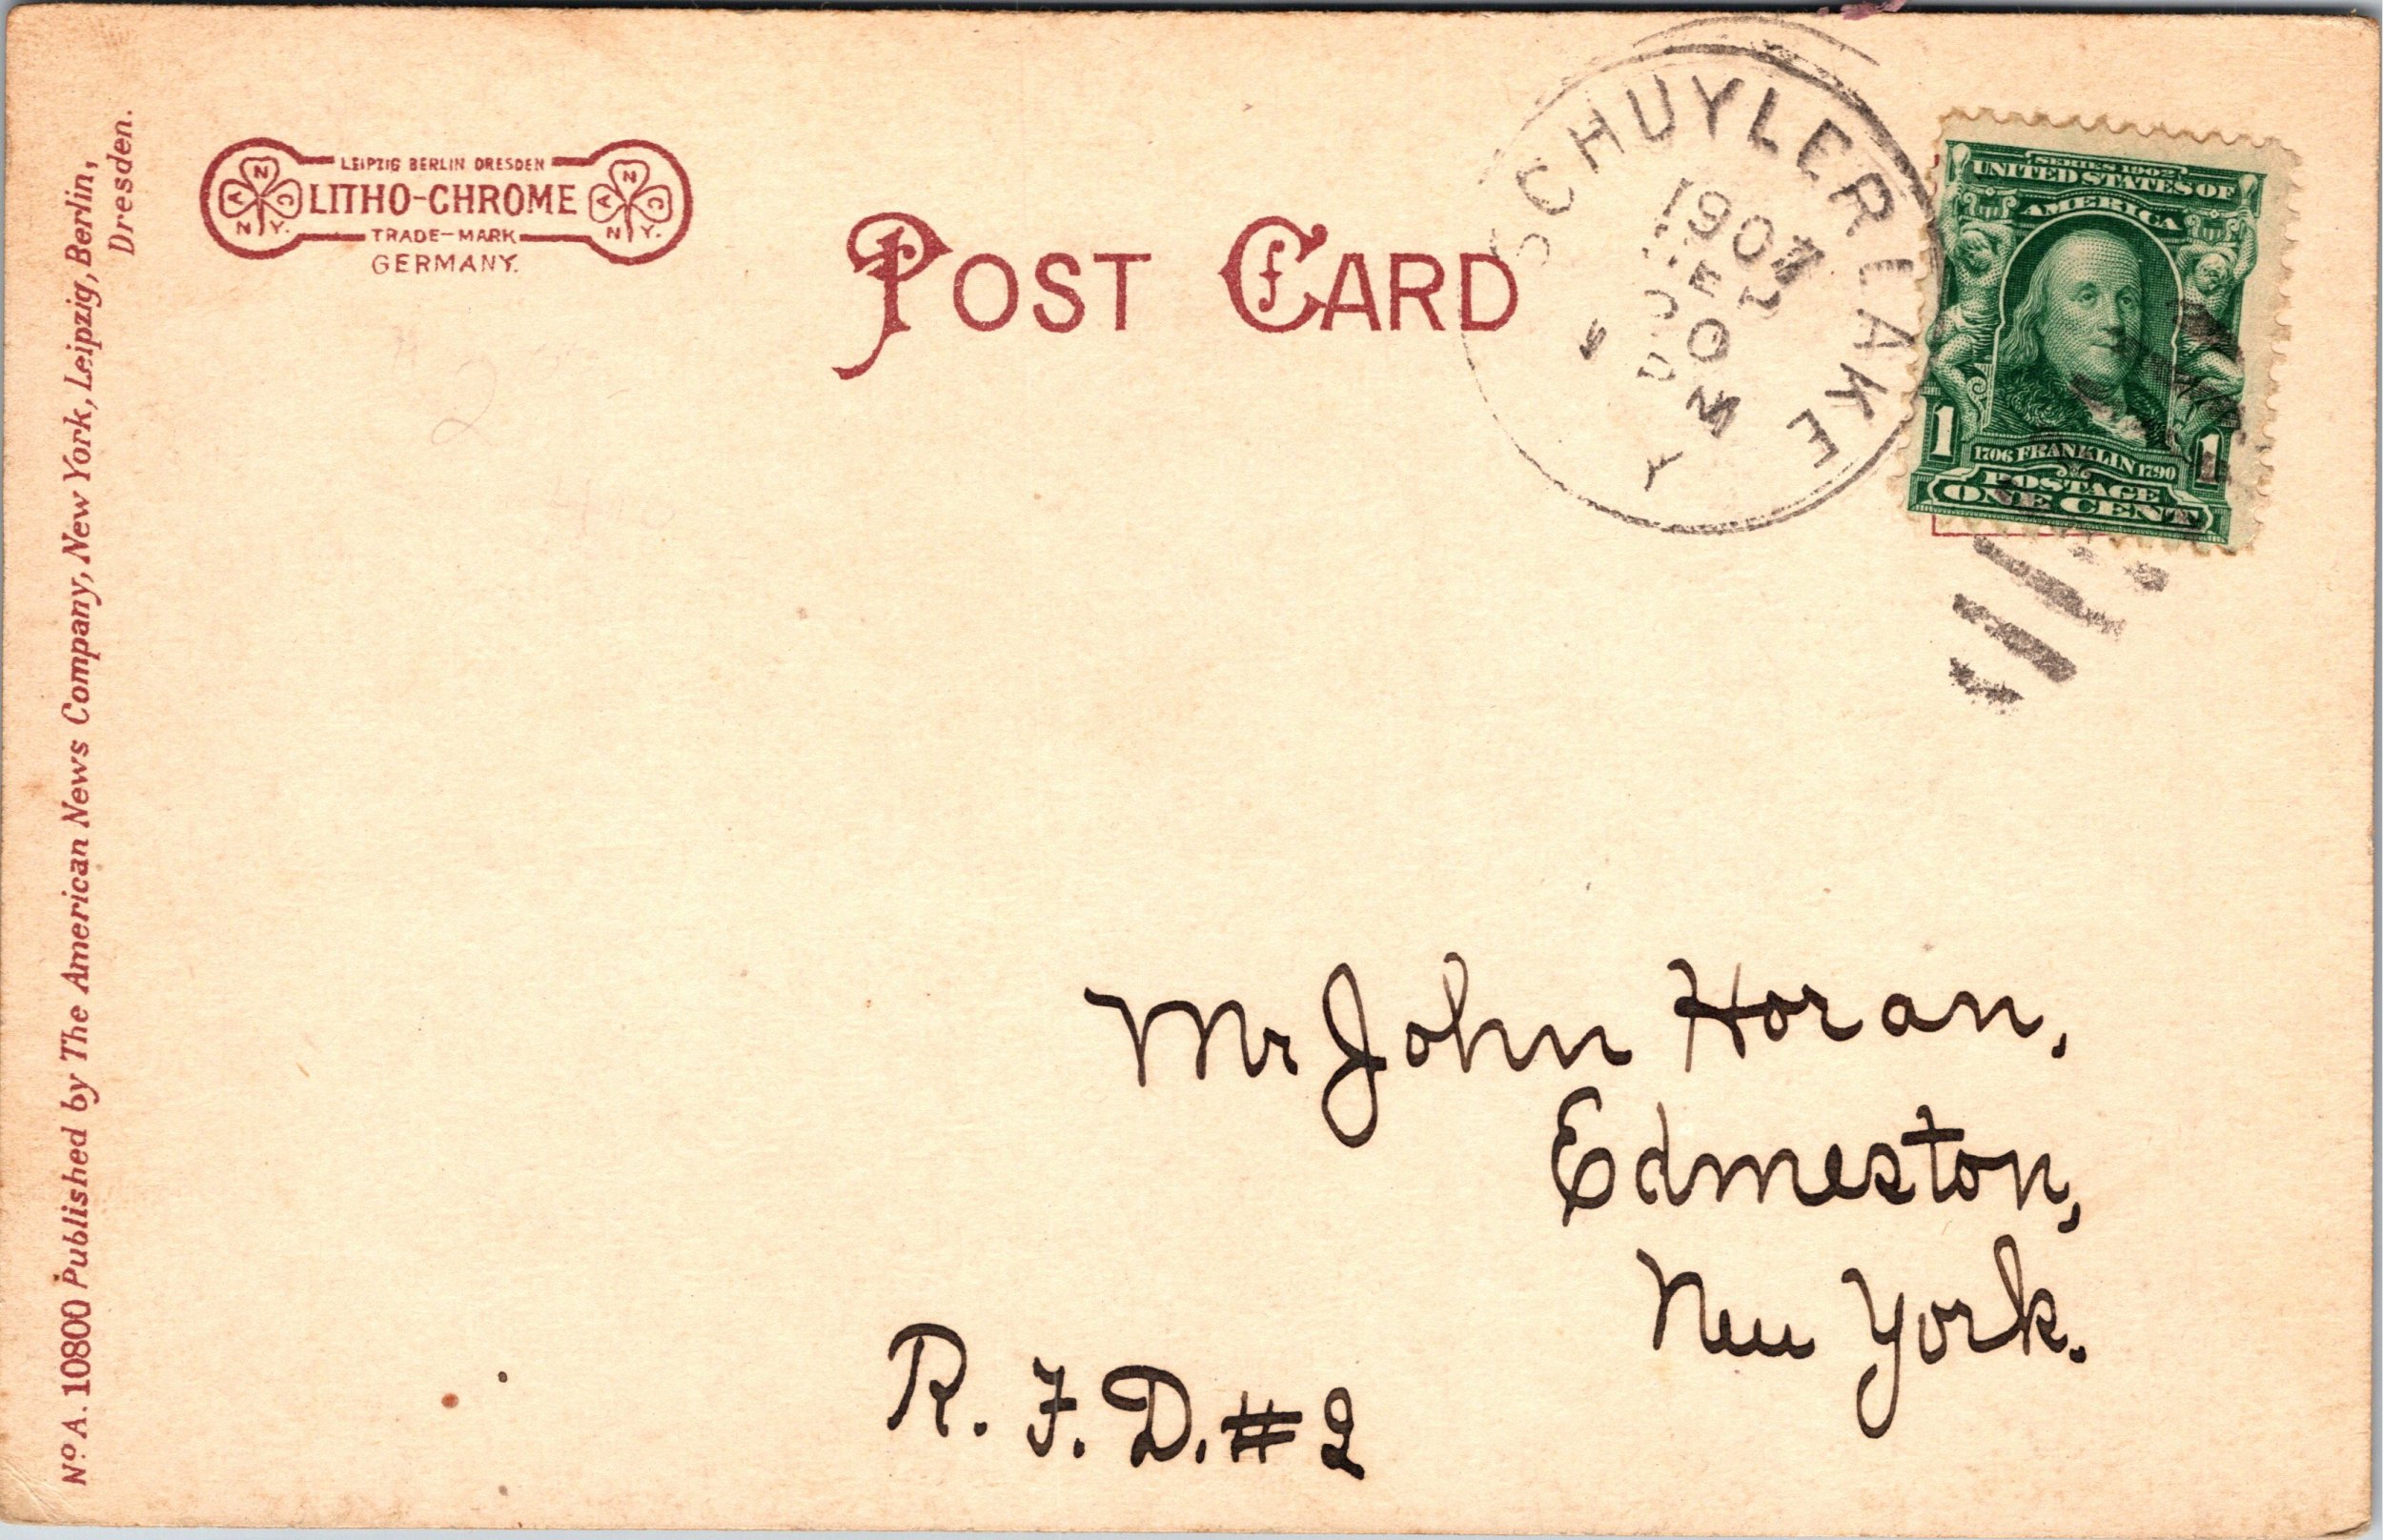 LEIPZIG BERLIN DRESDEN
LITHO-CHROME
TRADE-MARK
GERMANY.
A N C
N. Y.
A N C
N. Y.
POST CARD
SCHUYLER LAKE
1907
N Y
SERIES 1902
UNITED STATES OF
AMERICA
1 1
1706 FRANKLIN 1790
POSTAGE
ONE CENT
Mr John Horan,
Edmeston,
New York.
R. F. D. # 2
No A. 10800 Published by The American News Company, New York, Leipzig, Berlin,
Dresden.